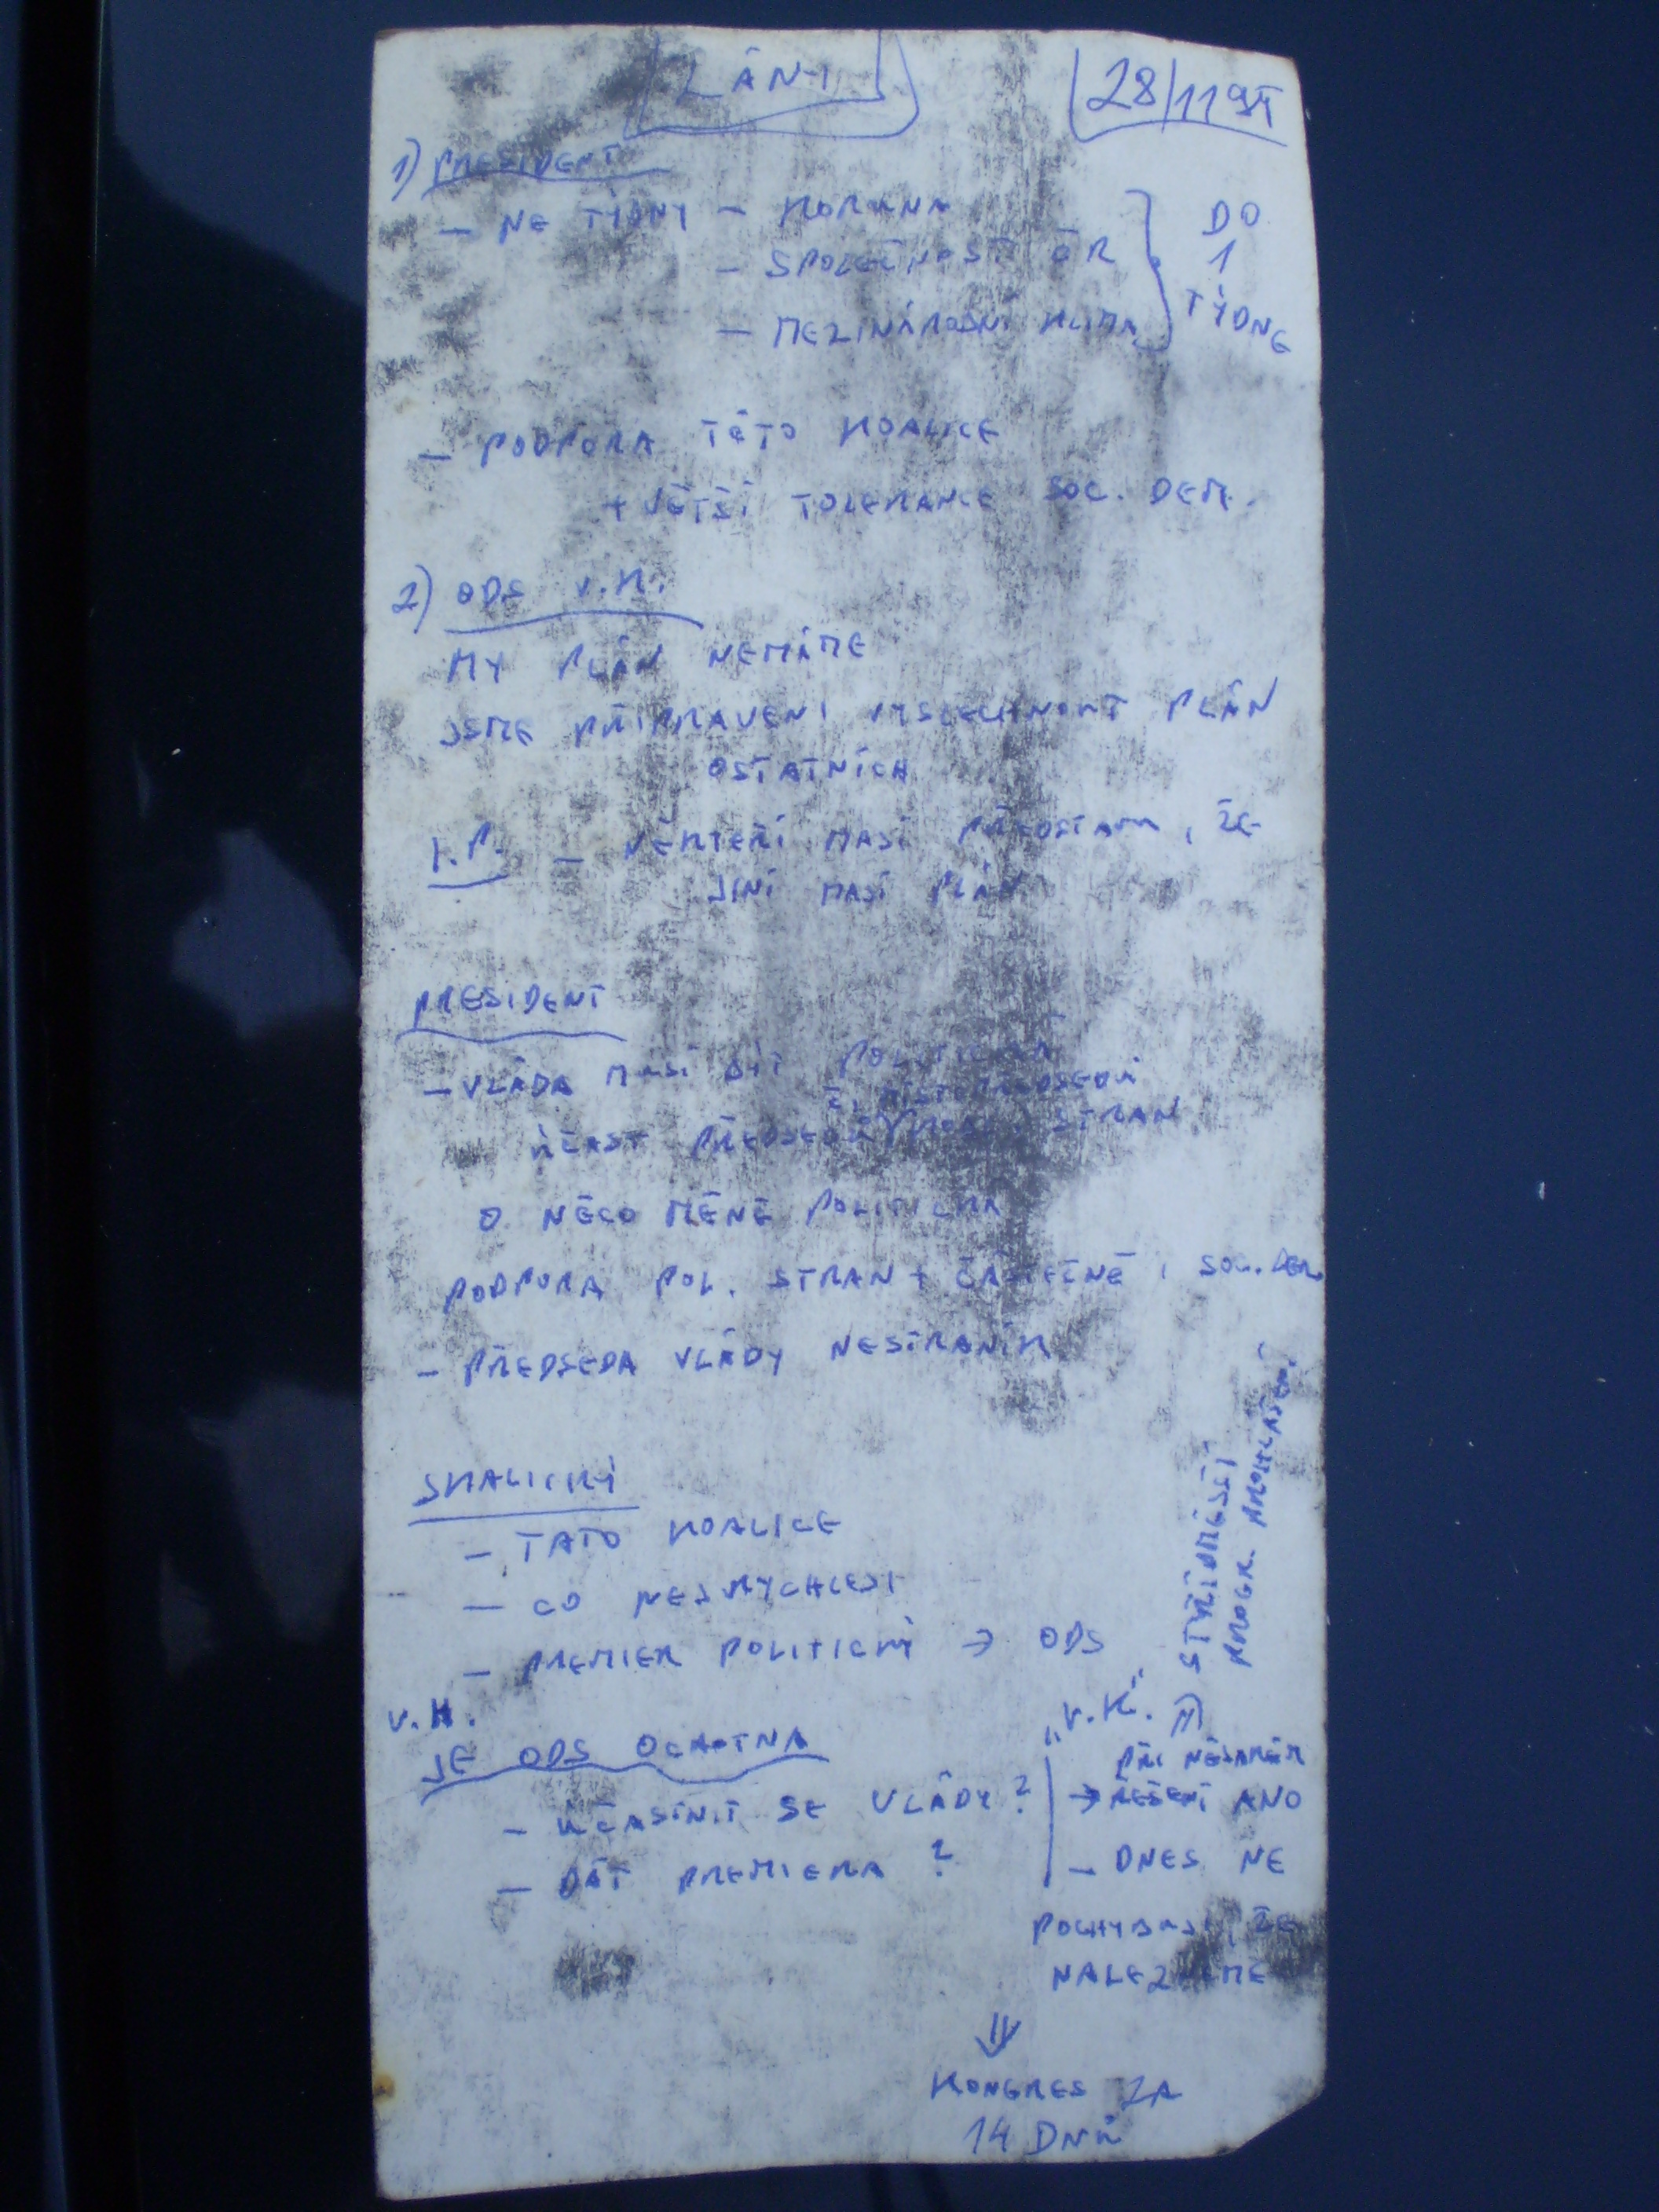 LÁNY
28/11 97
1) PRESIDENT
- NE TÝDNY - KORUNA
- SPOLEČNOST ČR
- MEZINÁRODNÍ KLIMA
DO
1
TÝDNE
- PODPORA TÉTO KOALICE
+ VĚTŠÍ TOLERANCE SOC. DEM.
2) ODS V.K.
MY PLÁN NEMÁME
JSME PŘIPRAVENI VYSLECHNOUT PLÁN
OSTATNÍCH
I.P. - NĚKTEŘÍ MAJÍ PŘEDSTAVU, ŽE
JINÍ MAJÍ PLÁN
PRESIDENT
- VLÁDA MUSÍ BÝT POLITICKÁ
Č. MÍSTOPŘEDSEDŮ
ÚČAST PŘEDSEDŮ STRAN
O NĚCO MÉNĚ POLITICKÁ
PODPORA POL. STRAN + ČÁSTEČNĚ I SOC. DEM
- PŘEDSEDA VLÁDY NESTRANÍK
SKALICKÝ
- TATO KOALICE
- CO NEJRYCHLEJI
- PREMIER POLITICKÝ → ODS
STŘÍDMĚJŠÍ
PROGR. PROHLÁŠENÍ
V.H.
JE ODS OCHOTNA
- ÚČASTNIT SE VLÁDY?
- DÁT PREMIERA?
"V.K."
PŘI NĚJAKÉM
→ ŘEŠENÍ ANO
- DNES NE
POCHYBUJI, ŽE
NALEZNEME
⇓
KONGRES ZA
14 DNŮ